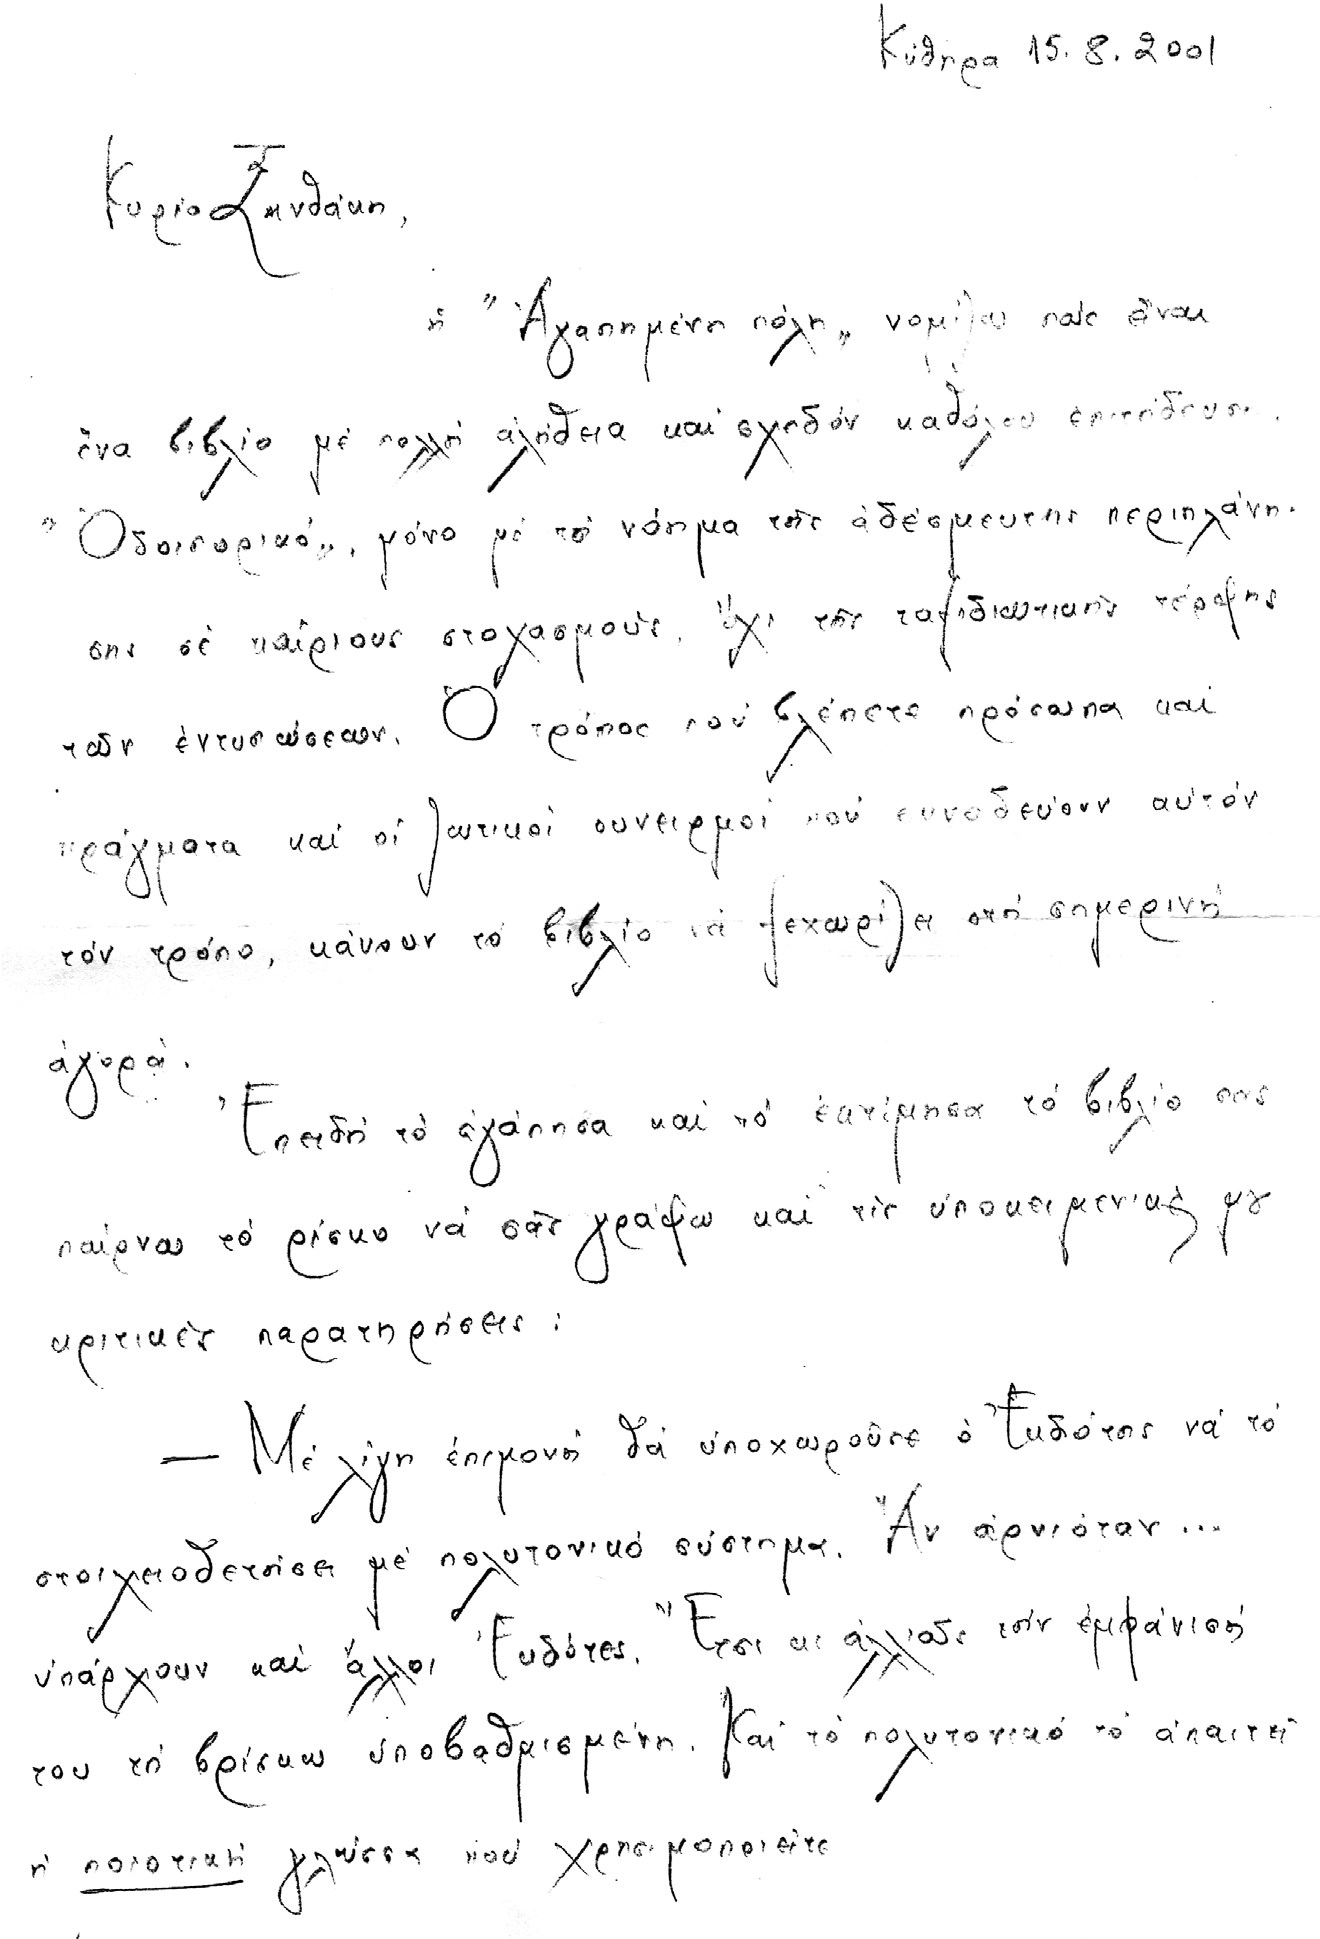 Κύθηρα 15.8.2001
Κύριε Ξανθάκη,
ἡ "Ἀγαπημένη πόλη„ νομίζω πώς εἶναι
ἕνα βιβλίο μέ πολλή ἀλήθεια καί σχεδόν καθόλου ἐπιτήδευση.
"Ὁδοιπορικό„, μόνο μέ τό νόημα τῆς ἀδέσμευτης περιπλάνη-
σης σέ καίριους στοχασμούς. Ὄχι τῆς ταξιδιωτικῆς τέρψης
τῶν ἐντυπώσεων. Ὁ τρόπος πού βλέπετε πρόσωπα καί
πράγματα καί οἱ ζωτικοί συνειρμοί πού συνοδεύουν αὐτόν
τόν τρόπο, κάνουν τό βιβλίο νά ξεχωρίζει στή σημερινή
ἀγορά.
Ἐπειδή τό ἀγάπησα καί τό ἐκτίμησα τό βιβλίο σας
παίρνω τό ρίσκο νά σᾶς γράψω καί τίς ὑποκειμενικές μου
κριτικές παρατηρήσεις:
— Μέ λίγη ἐπιμονή θά ὑποχωροῦσε ὁ Ἐκδότης νά τό
στοιχειοθετήσει μέ πολυτονικό σύστημα. Ἄν ἀρνιόταν...
ὑπάρχουν καί ἄλλοι Ἐκδότες. Ἔτσι κι ἀλλιῶς τήν ἐμφάνισή
του τή βρίσκω ὑποβαθμισμένη. Καί τό πολυτονικό τό ἀπαιτεῖ
ἡ ποιοτική γλώσσα πού χρησιμοποιεῖτε